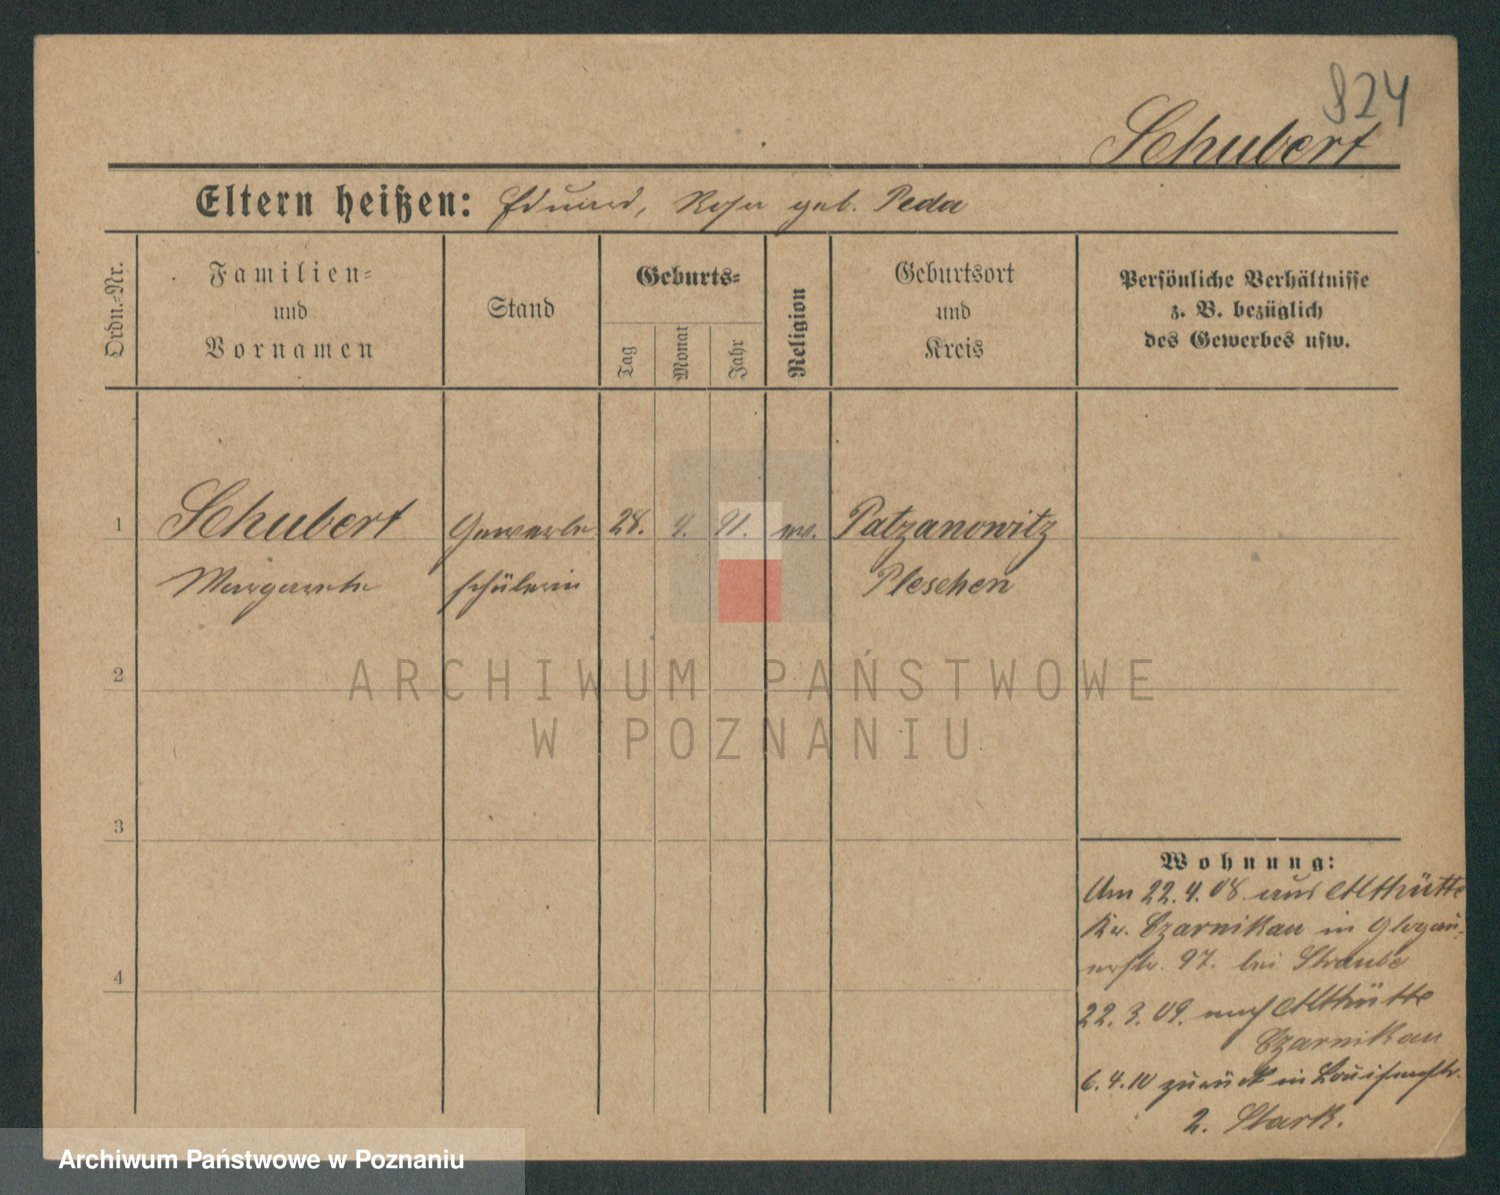 824
Schubert
Eltern heißen: Eduard, Rosa geb. Peda
Ordn.-Nr.
Familien-
und
Vornamen
Stand
Geburts-
Tag
Monat
Jahr
Religion
Geburtsort
und
Kreis
Persönliche Verhältnisse
z. B. bezüglich
des Gewerbes usw.
1 Schubert Gewerbe 28. 9. 91. ev. Patzanowitz
Margarete schülerin Pleschen
2
3
4
Wohnung:
Am 22.4.08 aus Althütte
Kr. Czarnikau in Glogau-
erstr. 97. bei Straube
22.3.09. nach Althütte
Czarnikau
6.4.10 zurück in Louisenstr.
2. Stark.
ARCHIWUM PAŃSTWOWE
W POZNANIU
Archiwum Państwowe w Poznaniu